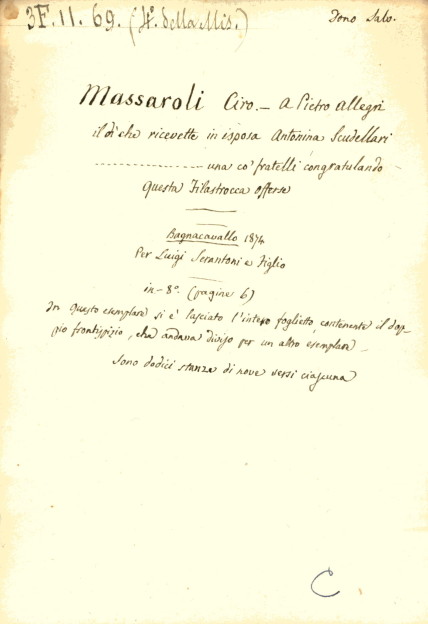 3F. 11. 69. (4º della Mis.)
Dono Salv.
Massaroli Ciro. – A Pietro Allegri
il dì che ricevette in isposa Antonina Scudellari
---------------------- una co' fratelli congratulando
Questa Filastrocca offerse
Bagnacavallo 1874
Per Luigi Serantoni e Figlio
in-8º. (pagine 6)
In questo esemplare si è lasciato l'intero foglietto, contenente il dop-
pio frontispizio, che andava diviso per un altro esemplare –
Sono dodici stanze di nove versi ciascuna
C